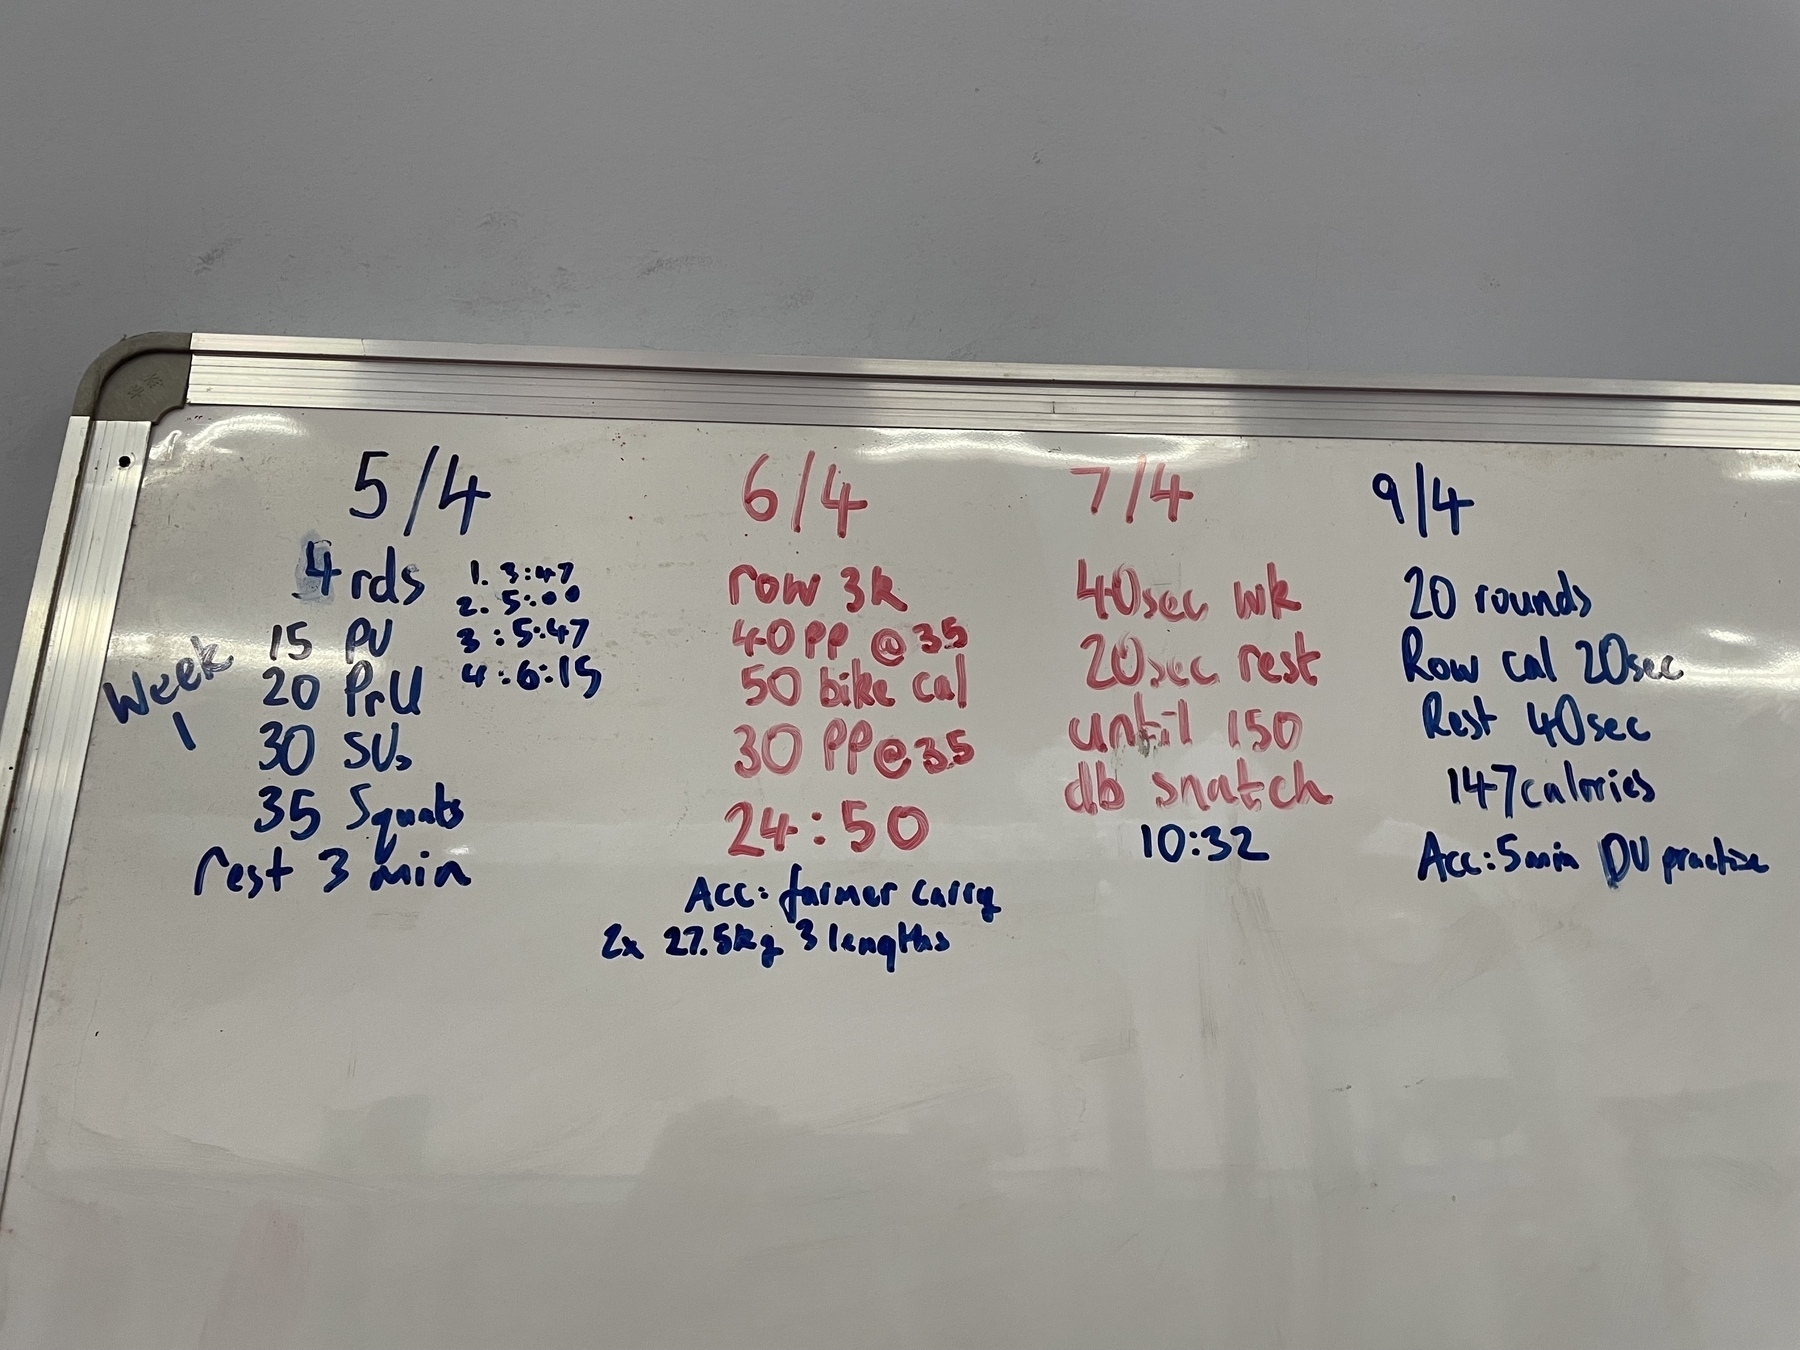 5/4
4 rds
1. 3:47
2. 5:00
3 : 5:47
4 : 6:15
Week 1
15 PU
20 PrU
30 SUs
35 Squats
rest 3 min
6/4
row 3k
40 PP @ 35
50 bike cal
30 PP @ 35
24:50
Acc: farmer carry
2x 27.5kg 3 lengths
7/4
40sec wk
20sec rest
until 150
db snatch
10:32
9/4
20 rounds
Row cal 20sec
Rest 40sec
147 calories
Acc: 5min DU practise